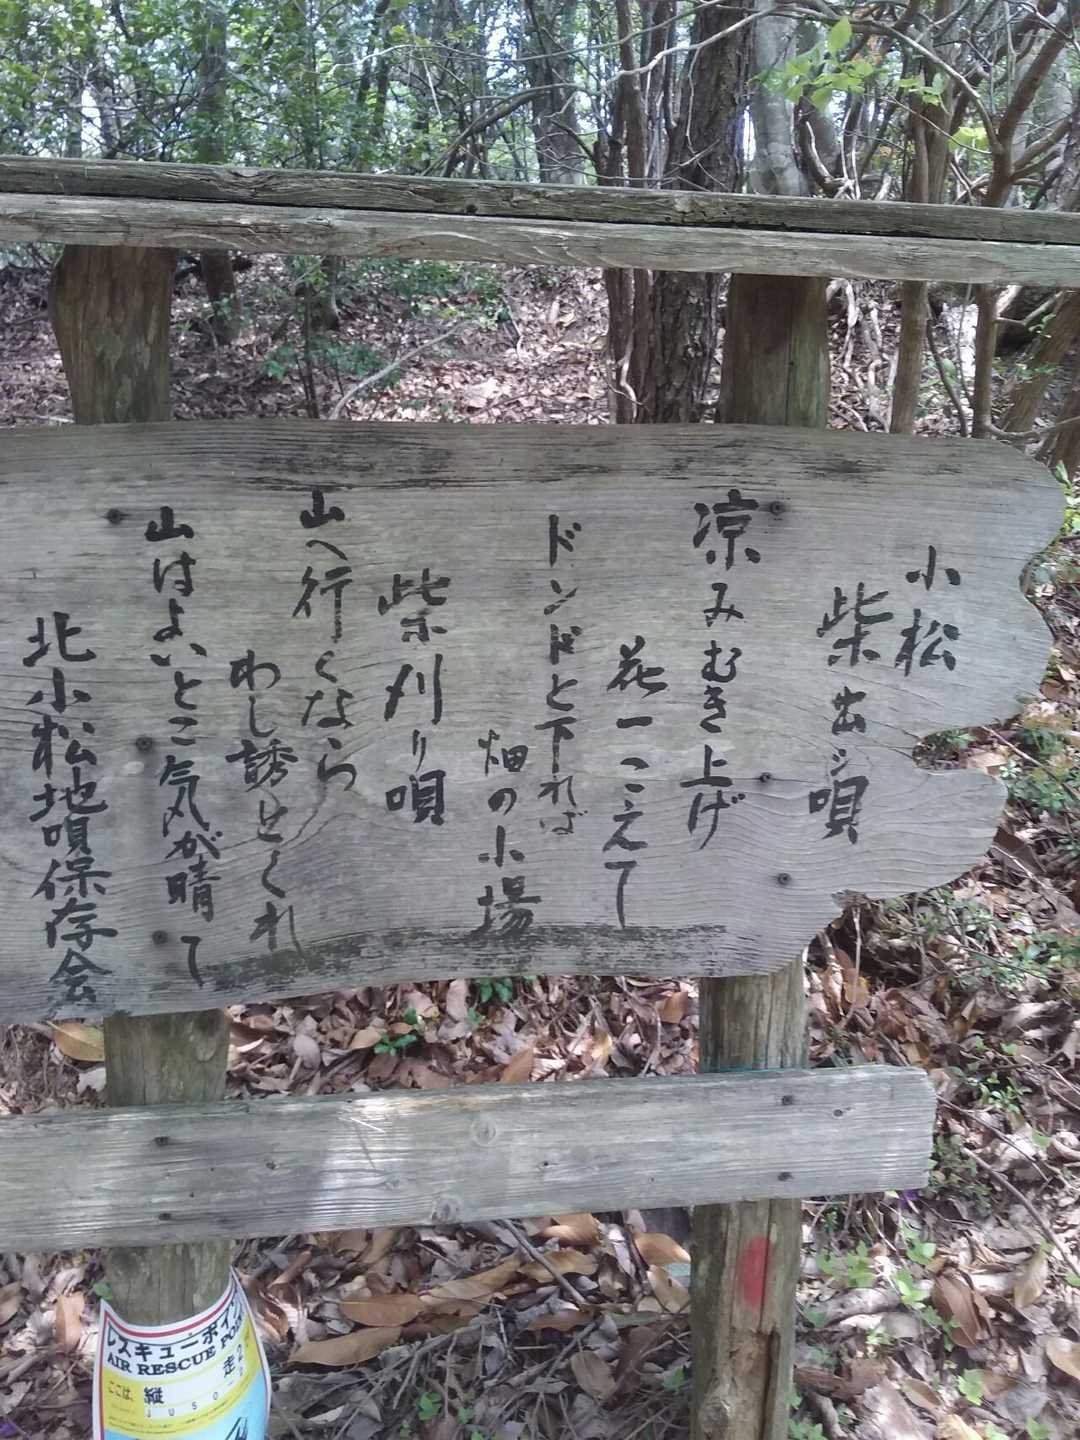 小松
柴出シ唄
涼みむき上げ
花一つこえて
ドンドと下れば
畑の小場
柴刈り唄
山へ行くなら
わし誘せくれ
山はよいとこ気が晴て
北小松地唄保存会
レスキューポイン
AIR RESCUE POIN
ここは、縦走2
JUSO